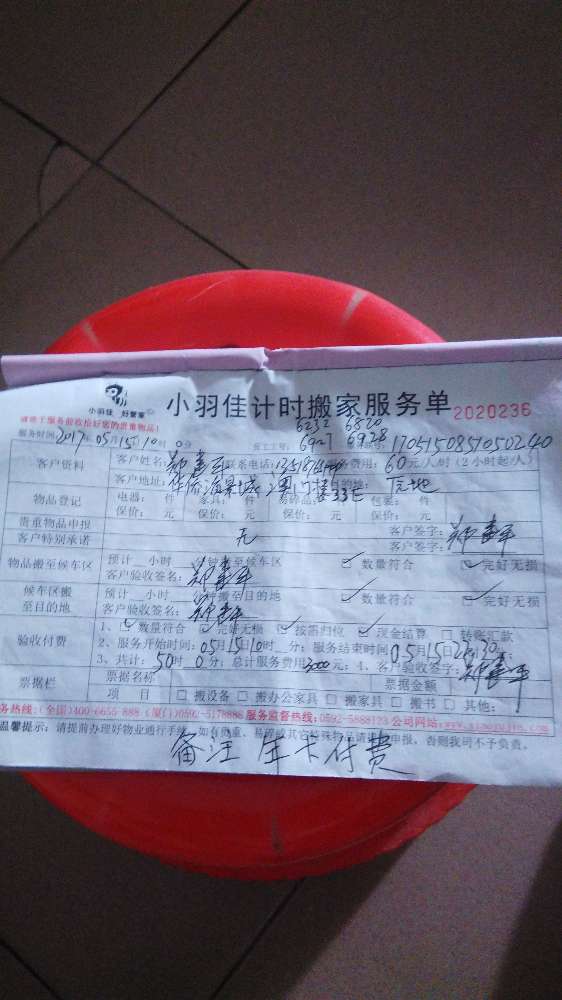 小羽佳 好管家
小羽佳计时搬家服务单 2020236
6232 6820
服务时间:2017年05月15日10时0分 员工工号: 6927 6928 17051508510502240
客户资料 客户姓名: 联系电话: 服务费用: 60元/人/时(2小时起/人)
客户地址: 目的地:
物品登记 电器: 件 家具: 件 易碎品: 件 包装: 件
保价: 元 保价: 元 保价: 元 保价: 元
贵重物品申报 客户签字:
客户特别承诺 无 客户签字:
物品搬至候车区 预计__小时__分钟搬至候车区 ☑ 数量符合 ☑ 完好无损
客户验收签名:
候车区搬至目的地 预计__小时__分钟搬至目的地 ☑ 数量符合 ☑ 完好无损
客户验收签名:
验收付费 1、☑ 数量符合 ☑ 完好无损 ☑ 按需归位 ☑ 现金结算 □ 转账汇款
2、服务开始时间:05月15日10时__分; 服务结束时间05月15日
3、共计:50时0分; 总计服务费用3000元; 4、客户验收签字:
票据栏 票据名称 票据金额
项 目 □ 搬设备 □ 搬办公家具 □ 搬家具 □ 搬书 □ 其他:
务热线:(全国)400-6655-888 (厦门)0592-5178888 服务监督热线:0592-5888123 公司网站:
温馨提示:请提前办理好物业通行手续,如有贵重、易碎或其它特殊物品请提前申报,否则我司不予负责。
备注 年卡付费